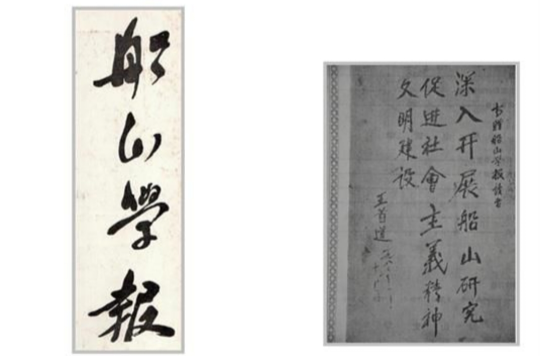 船山學报
书赠船山学报读者
深入开展船山研究
促进社會主義精神
文明建设
王首道